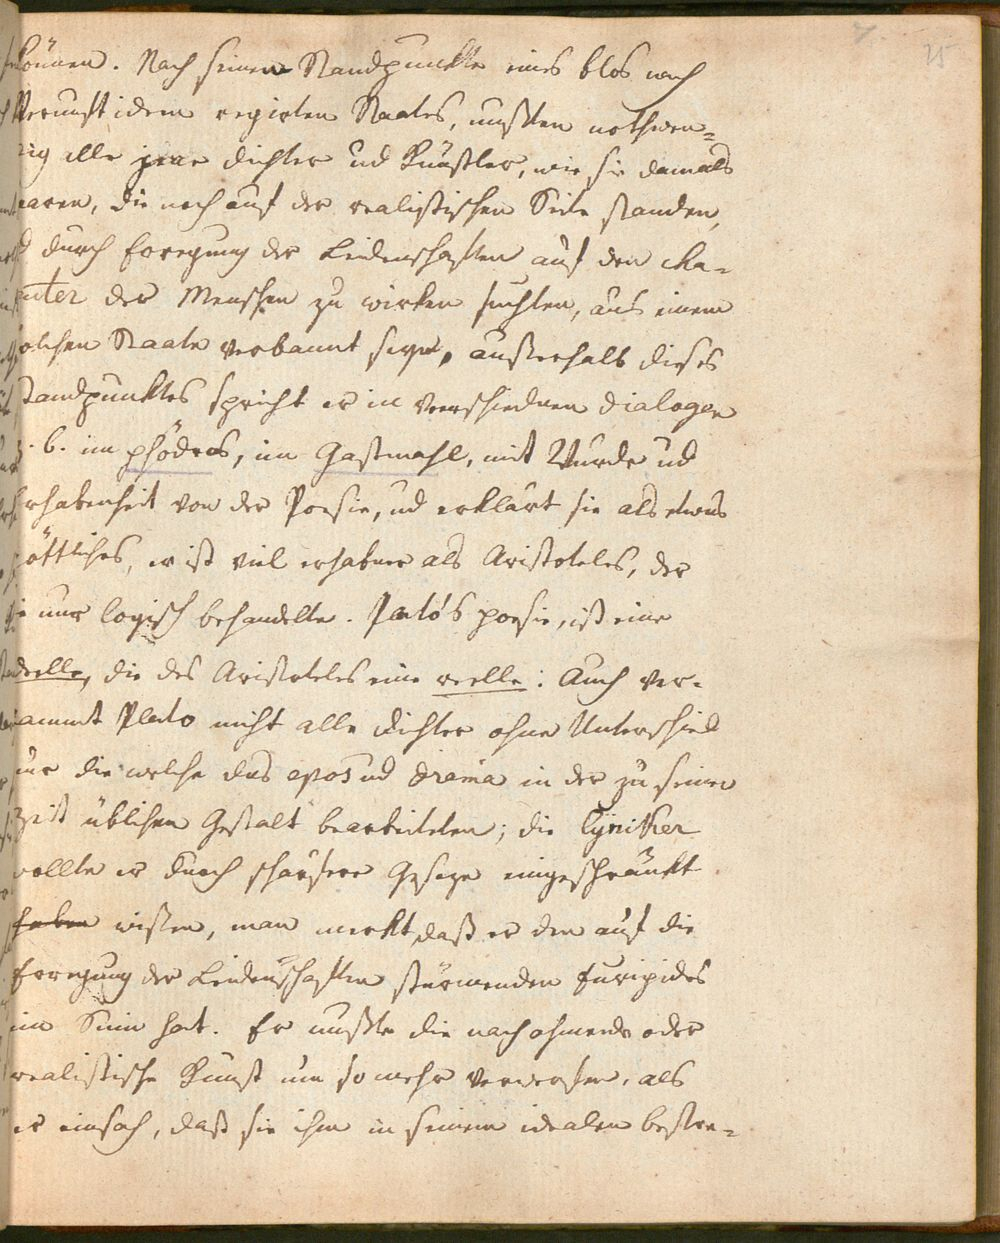 25
können. Nach seinem Standpunkte eines blos nach
Vernunftideen regirten Staates, mußten nothwen=
dig alle jene Dichter und Künstler, wie sie damals
waren, die noch auf der realistischen Seite standen,
durch Erregung der Leidenschaften auf den Cha=
rakter der Menschen zu wirken suchten, aus einem
solchen Staate verbannt seyn, außerhalb dieses
Standpunktes spricht er in verschiednen Dialogen
z. b. im Phödros, im Gastmahl, mit Würde und
Erhabenheit von der Poesie, und erklärt sie als etwas
göttliches, er ist viel erhabner als Aristoteles, der
sie nur logisch behandelte. Plato's poesie, ist eine
ideelle, die des Aristoteles eine reelle: Auch ver=
dammt Plato nicht alle Dichter ohne Unterschied
nur die welche das epos und drama in der zu seiner
Zeit üblichen Gestalt bearbeiteten; die Cyniker
wollte er durch schärfere Geseze eingeschränkt
haben wißen, man merkt, daß er den auf die
Erregung der Leidenschaften stürmenden Euripides
im Sinn hat. Er mußte die nachahmende oder
realistische Kunst um so mehr verwerfen, als
er einsah, daß sie ihm in seinem idealen bestre=